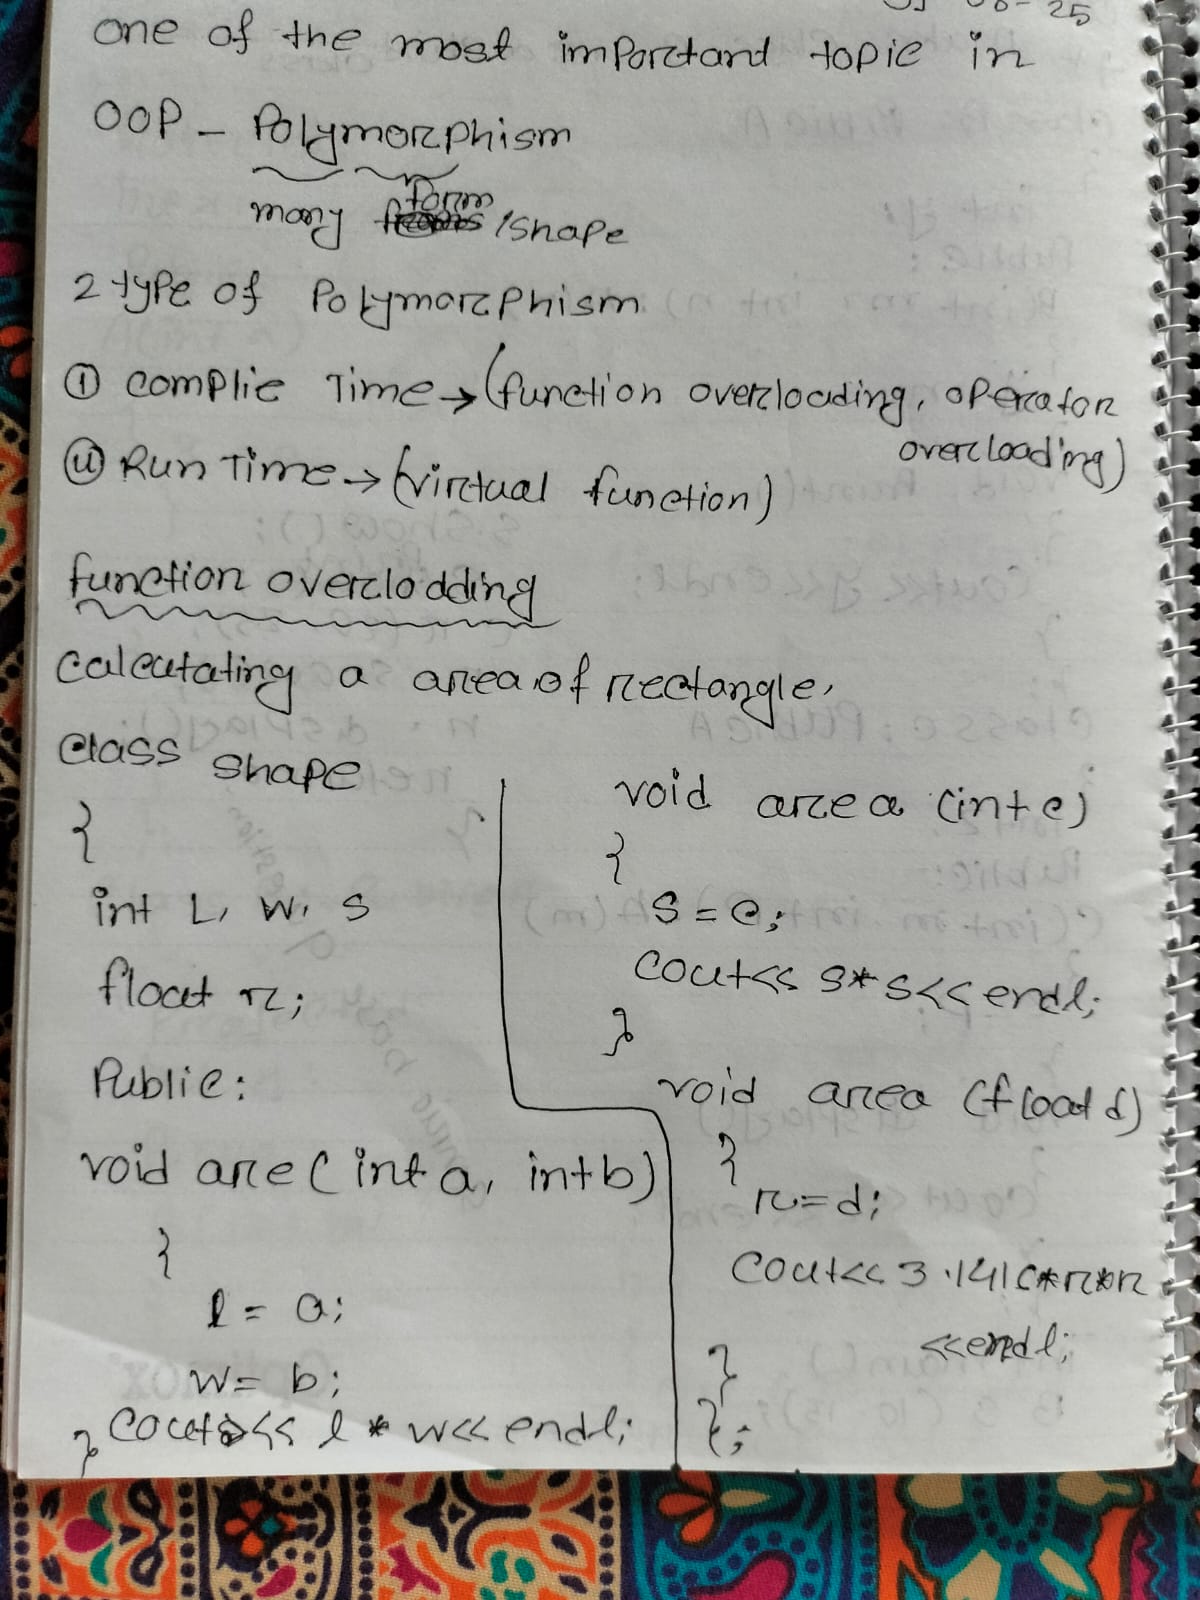 25
one of the most importand topic in
OOP - Polymorphism
many form /shape
2 type of Polymorphism
① complie Time → (function overloading, operator
overloading)
② Run Time → (virtual function)
function overlodding
calculating a area of rectangle,
class shape
{
int L, W, S
float r;
Public:
void are (int a, int b)
{
l = a;
w = b;
cout << l * w << endl;
}
void area (int c)
{
S = c;
cout<< s*s<< endl;
}
void area (float d)
{
r = d;
cout<< 3.1416*r*r
<<endl;
}
};